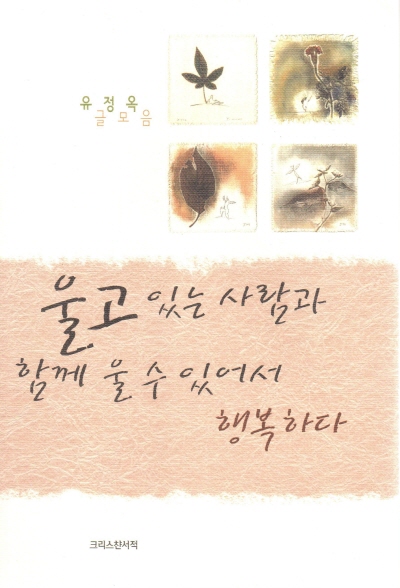 유정옥
글모음
울고 있는 사람과
함께 울 수 있어서
행복하다
크리스챤서적